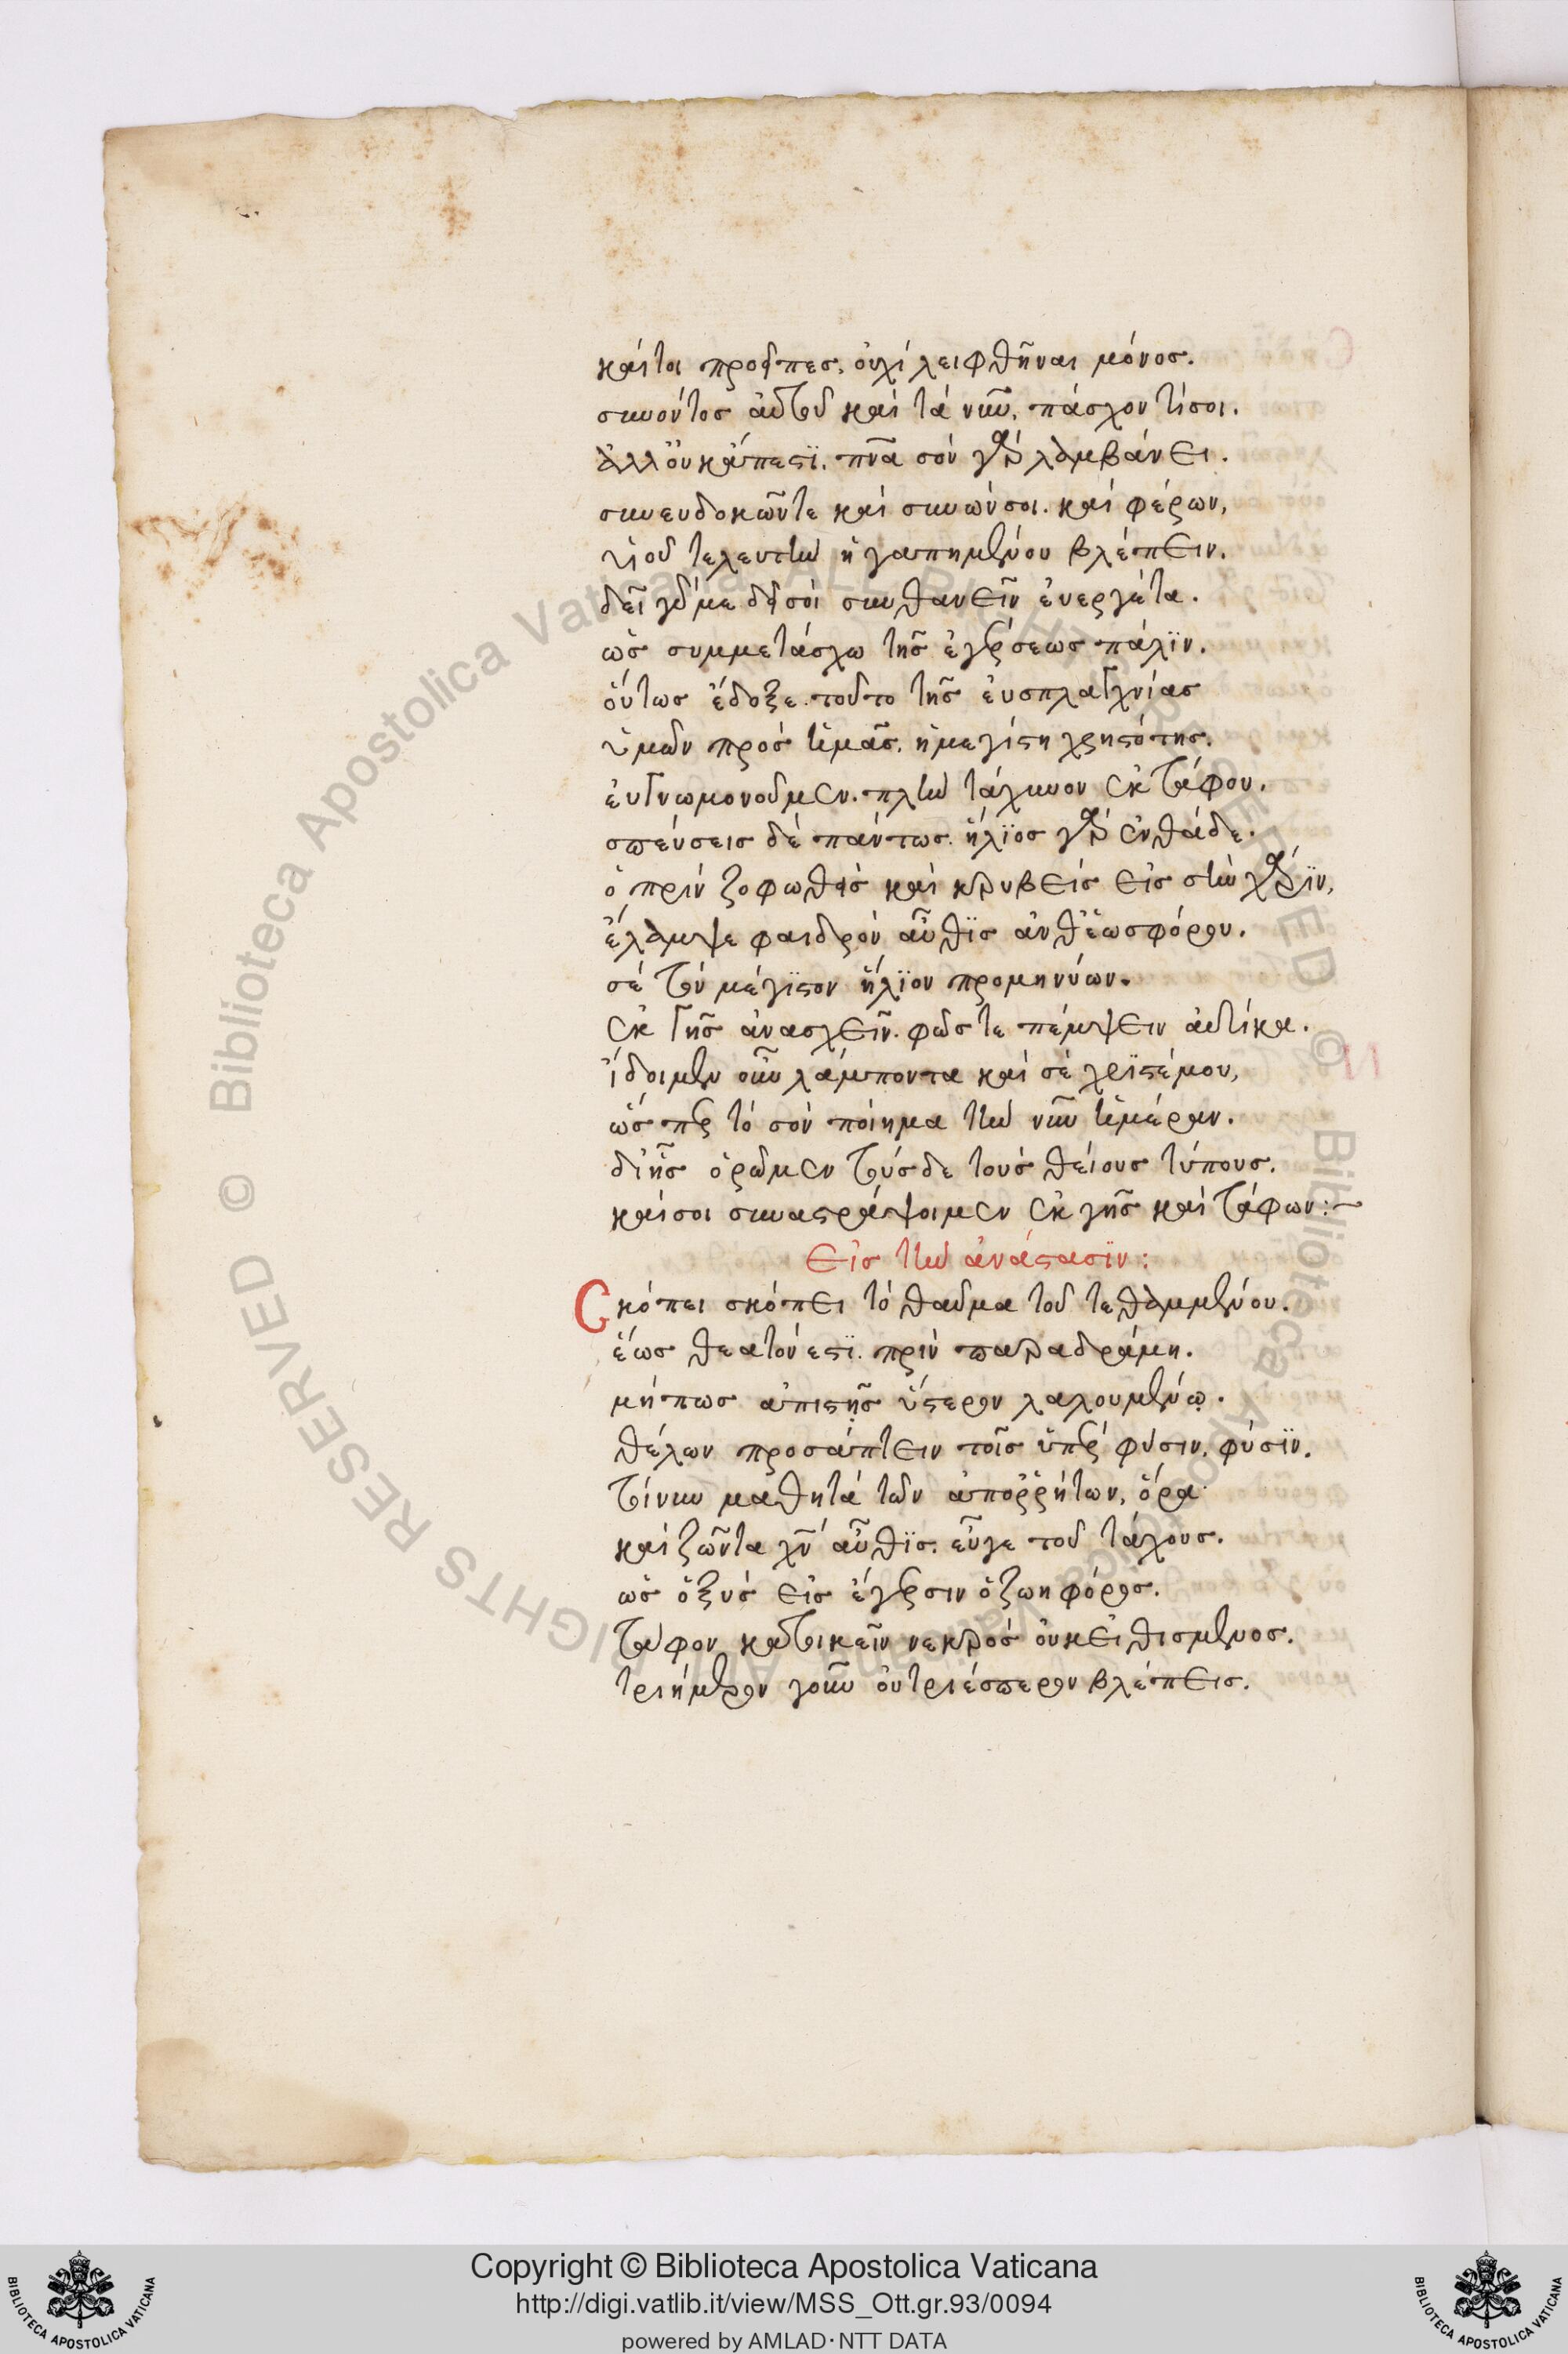 καίτοι προεῖπες, οὐχὶ λειφθῆναι μόνος.
συνόντος αὐτοῦ καὶ τὰ νῦν, πάσχοντί σοι.
ἀλλ' οὐκ ἄπεστϊ. πνα σὸν γὰρ λαμβάνει.
συνευδοκῶν τε καὶ συνών σοι. καὶ φέρων,
υἱοῦ τελευτὴν ἠγαπημένου βλέπειν.
δεῖ γοῦν με δεῖ σοὶ συνθανεῖν εὐεργέτα.
ὡς συμμετάσχω τῆς ἐγέρσεως πάλϊν.
οὕτως ἔδοξε τοῦτο τῆς εὐσπλαγχνίας
ὑμῶν πρὸς ἡμᾶς, ἡ μεγίστη χρηστότης.
εὐγνωμονοῦμεν. πλὴν τάχυνον ἐκ τάφου.
σπεύσεις δὲ πάντως. ἥλϊος γὰρ ἐνθάδε.
ὁ πρὶν ζοφωθεὶς καὶ κρυβεὶς εἰς σὴν χάρϊν,
ἔλαμψε φαιδρὸν αὖθϊς ἀνθ' ἑωσφόρου.
σὲ τὸν μέγϊστον ἥλϊον προμηνύων.
ἐκ γῆς ἀνασχεῖν. φῶς τε πέμψειν αὐτίκα.
ἴδοιμεν οὖν λάμποντα καὶ σὲ χρϊστέ μου,
ὥσπερ τὸ σὸν ποίημα τὴν νῦν ἡμέραν.
δι' ἧς ὁρῶμεν τούσδε τοὺς θείους τύπους.
καί σοι συναστράψοιμεν ἐκ γῆς καὶ τάφων:~
Εἰς τὴν ἀνάστασϊν:
Σκόπει σκόπει τὸ θαῦμα τοῦ τεθαμμένου.
ἕως θεατόν ἐστϊ. πρὶν παραδράμη.
μήπως ἀπιστῇς ὕστερον λαλουμένῳ.
θέλων προσάπτειν τοῖς ὑπὲρ φύσιν, φύσϊν.
τίνυν μαθητὰ τῶν ἀποῤῥήτων, ὅρα
καὶ ζῶντα χν αὖθϊς. εὖγε τοῦ τάχους.
ὡς ὀξὺς εἰς ἔγερσιν ὁ ζωηφόρος.
τάφον κατοικεῖν νεκρὸς οὐκ εἰθισμένος.
τριήμερον γοῦν οὐ τριέσπερον βλέπεις.
Copyright © Biblioteca Apostolica Vaticana
http://digi.vatlib.it/view/MSS_Ott.gr.93/0094
powered by AMLAD·NTT DATA